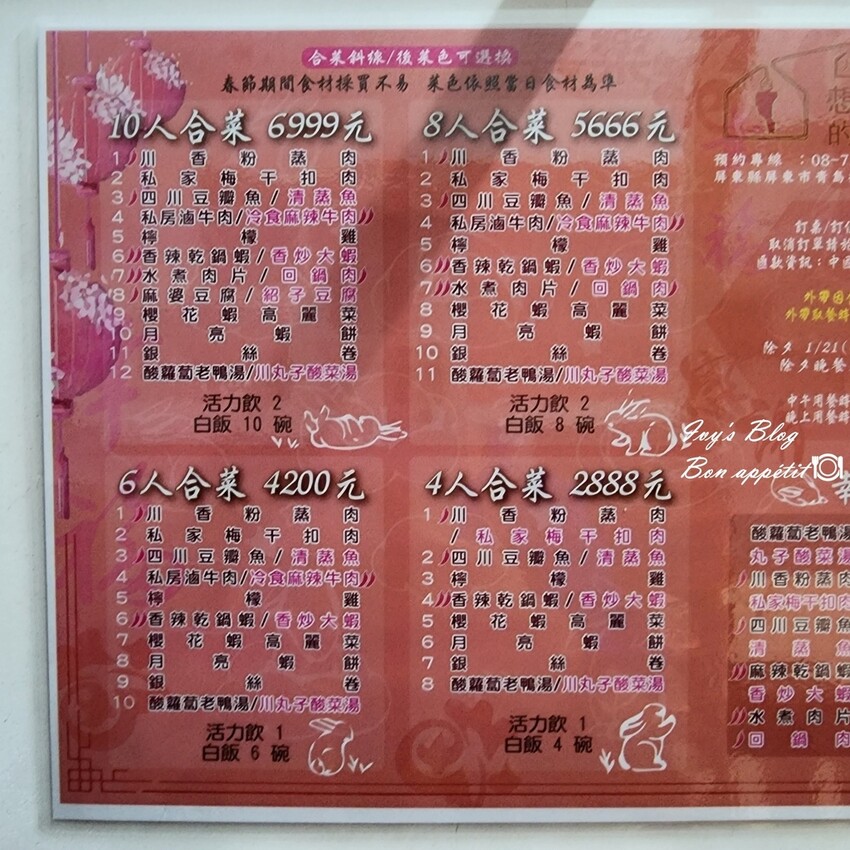 合菜斜線/後菜色可選換
春節期間食材採買不易 菜色依照當日食材為準
10人合菜 6999元
1 川香粉蒸肉
2 私家梅干扣肉
3 四川豆瓣魚/清蒸魚
4 私房滷牛肉/冷食麻辣牛肉
5 檸檬雞
6 香辣乾鍋蝦/香炒大蝦
7 水煮肉片/回鍋肉
8 麻婆豆腐/紹子豆腐
9 櫻花蝦高麗菜
10 月亮蝦餅
11 銀絲卷
12 酸蘿蔔老鴨湯/川丸子酸菜湯
活力飲 2
白飯 10 碗
8人合菜 5666元
1 川香粉蒸肉
2 私家梅干扣肉
3 四川豆瓣魚/清蒸魚
4 私房滷牛肉/冷食麻辣牛肉
5 檸檬雞
6 香辣乾鍋蝦/香炒大蝦
7 水煮肉片/回鍋肉
8 櫻花蝦高麗菜
9 月亮蝦餅
10 銀絲卷
11 酸蘿蔔老鴨湯/川丸子酸菜湯
活力飲 2
白飯 8 碗
6人合菜 4200元
1 川香粉蒸肉
2 私家梅干扣肉
3 四川豆瓣魚/清蒸魚
4 私房滷牛肉/冷食麻辣牛肉
5 檸檬雞
6 香辣乾鍋蝦/香炒大蝦
7 櫻花蝦高麗菜
8 月亮蝦餅
9 銀絲卷
10 酸蘿蔔老鴨湯/川丸子酸菜湯
活力飲 1
白飯 6 碗
4人合菜 2888元
1 川香粉蒸肉
/ 私家梅干扣肉
2 四川豆瓣魚/清蒸魚
3 檸檬雞
4 香辣乾鍋蝦/香炒大蝦
5 櫻花蝦高麗菜
6 月亮蝦餅
7 銀絲卷
8 酸蘿蔔老鴨湯/川丸子酸菜湯
活力飲 1
白飯 4 碗
想
的
預約專線 :08-7
屏東縣屏東市青島
訂桌/訂
取消訂單請於
匯款資訊:中國
外帶
外帶取餐時
除夕 1/21(
除夕晚餐
中午用餐時
晚上用餐時
Joy's Blog
Bon appétit
酸蘿蔔老鴨湯
丸子酸菜湯
川香粉蒸肉
私家梅干扣肉
四川豆瓣魚
清蒸魚
麻辣乾鍋蝦
香炒大蝦
水煮肉片
回鍋肉